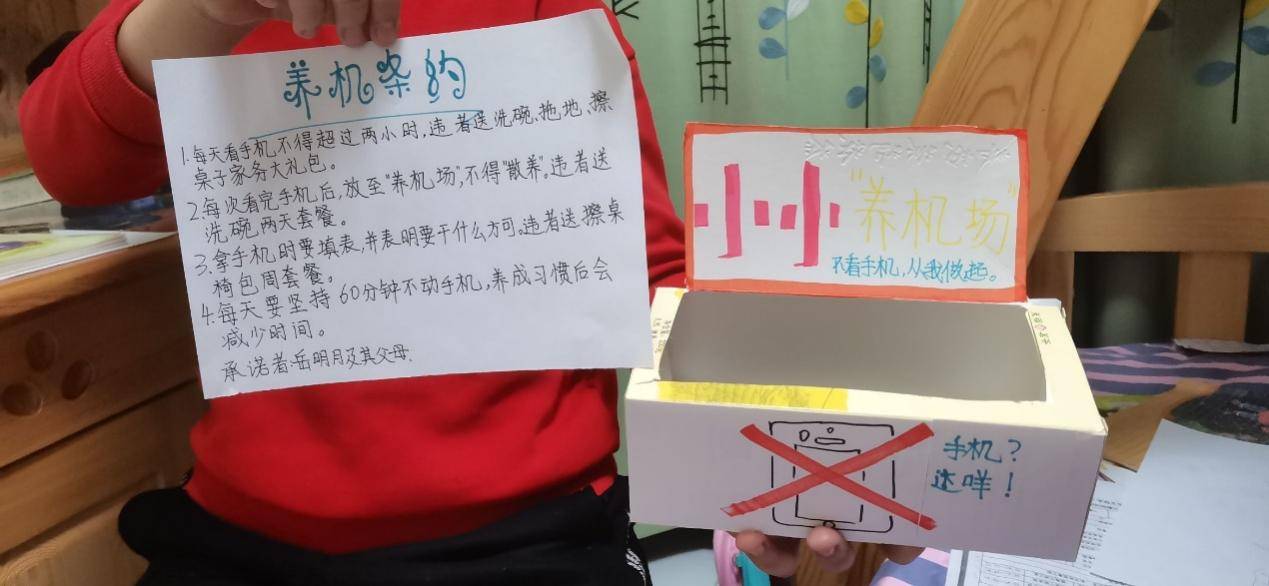 养机条约
1.每天看手机不得超过两小时,违者送洗碗、拖地、擦
桌子家务大礼包。
2.每次看完手机后,放至"养机场",不得"散养"。违者送
洗碗两天套餐。
3.拿手机时要填表,并表明要干什么方可。违者送擦桌
椅包周套餐。
4.每天要坚持60分钟不动手机,养成习惯后会
减少时间。
承诺者:岳明月及其父母.
小小"养机场"
不看手机,从我做起。
手机?
达咩!